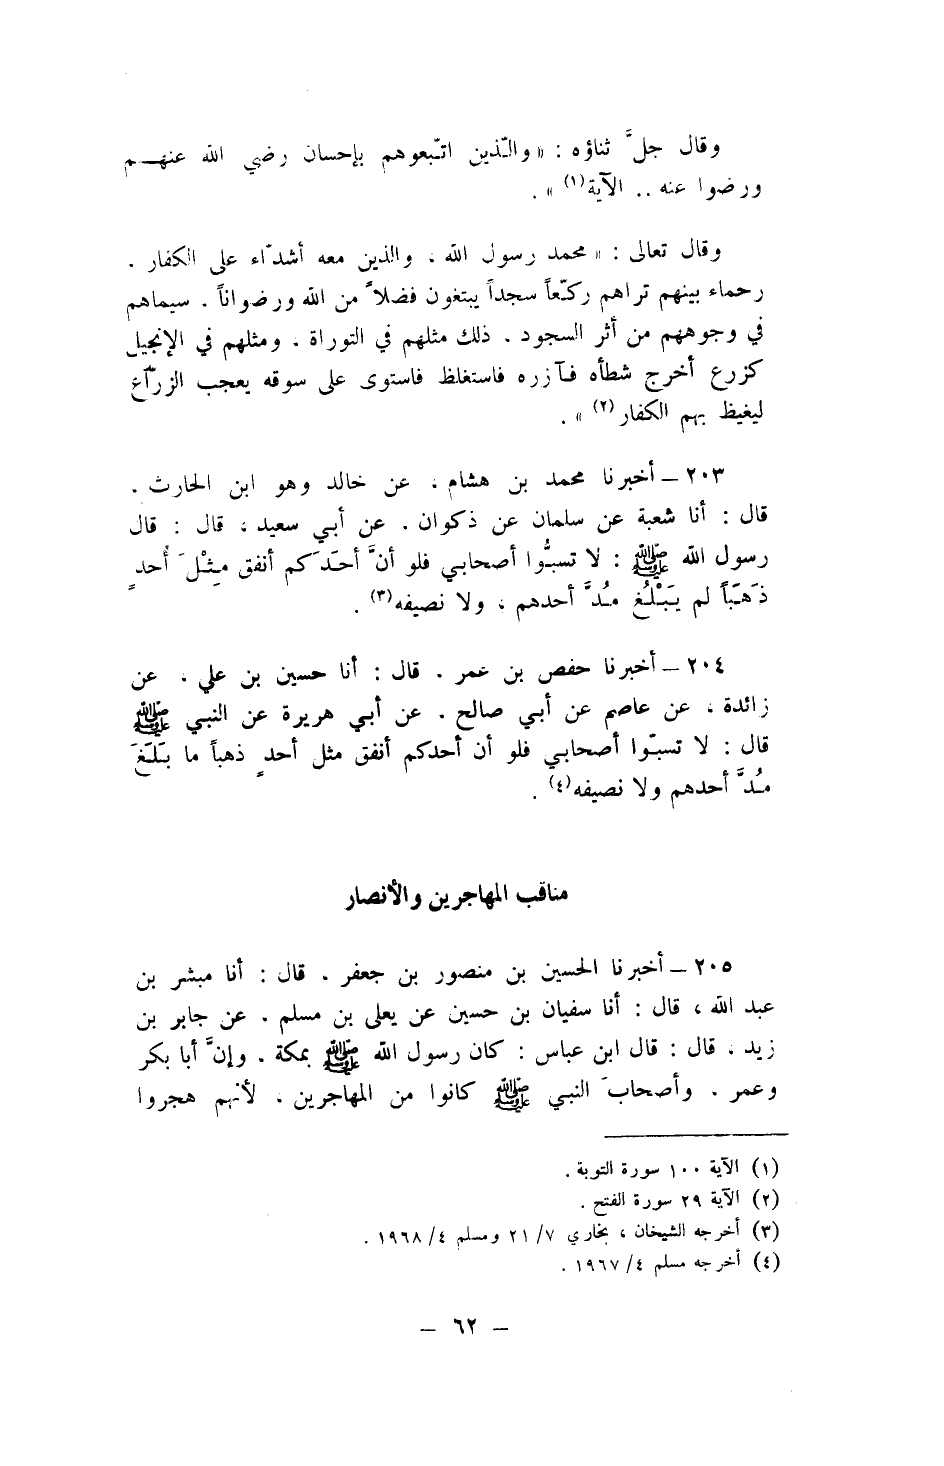 وقال جلَّ ثناؤه : « والّذين اتّبعوهم بإحسان رضي الله عنهـــم
ورضوا عنه .. الآية(١) » .
وقال تعالى : « محمد رسول الله ، والذين معه أشدّاء على الكفار .
رحماء بينهم تراهم ركّعاً سجداً يبتغون فضلاً من الله ورضواناً . سيماهم
في وجوههم من أثر السجود . ذلك مثلهم في التوراة . ومثلهم في الإنجيل
كزرع أخرج شطأه فآزره فاستغلظ فاستوى على سوقه يعجب الزرّاع
ليغيظ بهم الكفار(٢) » .
٢٠٣ – أخبرنا محمد بن هشام ، عن خالد وهو ابن الحارث .
قال : أنا شعبة عن سلمان عن ذكوان . عن أبي سعيد ، قال : قال
رسول الله ﷺ : لا تسبُّوا أصحابي فلو أنَّ أحَدَكم أنفق مِثْلَ أُحدٍ
ذَهَبَاً لم يَبْلُغ مُدَّ أحدهم ، ولا نصيفه(٣) .
٢٠٤ – أخبرنا حفص بن عمر . قال : أنا حسين بن علي ، عن
زائدة ، عن عاصم عن أبي صالح . عن أبي هريرة عن النبي ﷺ
قال : لا تسبّوا أصحابي فلو أن أحدكم أنفق مثل أحدٍ ذهباً ما بَلَغَ
مُدَّ أحدهم ولا نصيفه(٤) .
مناقب المهاجرين والأنصار
٢٠٥ – أخبرنا الحسين بن منصور بن جعفر . قال : أنا مبشر بن
عبد الله ، قال : أنا سفيان بن حسين عن يعلى بن مسلم . عن جابر بن
زيد ، قال : قال ابن عباس : كان رسول الله ﷺ بمكة . وإنَّ أبا بكر
وعمر . وأصحابَ النبي ﷺ كانوا من المهاجرين ، لأنهم هجروا
(١) الآية ١٠٠ سورة التوبة .
(٢) الآية ٢٩ سورة الفتح .
(٣) أخرجه الشيخان ، بخاري ٧/ ٢١ ومسلم ٤/ ١٩٦٨ .
(٤) أخرجه مسلم ٤/ ١٩٦٧ .
– ٦٢ –